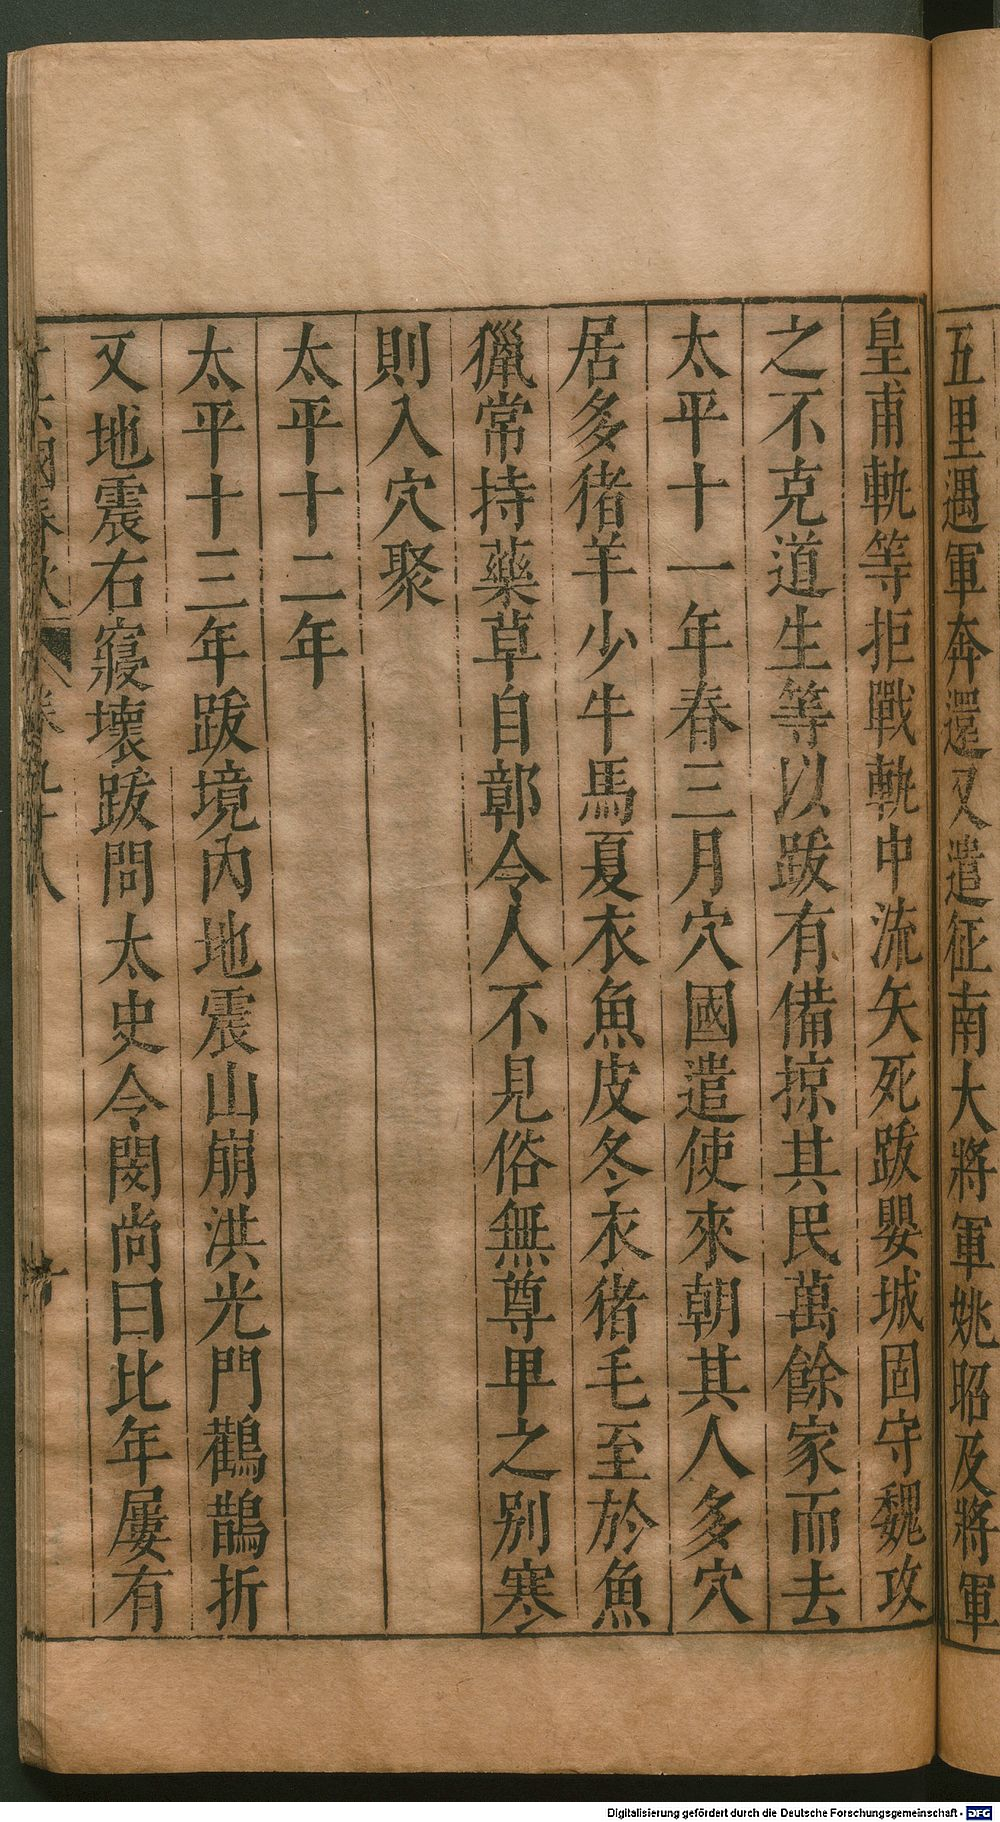 五里遇軍奔還又遣征南大將軍姚昭及將軍
皇甫軌等拒戰軌中流矢死跋嬰城固守魏攻
之不克道生等以跋有備掠其民萬餘家而去
太平十一年春三月穴國遣使來朝其人多穴
居多猪羊少牛馬夏衣魚皮冬衣猪毛至於魚
獵常持藥草自鄣令人不見俗無尊甲之別寒
則入穴聚
太平十二年
太平十三年跋境內地震山崩洪光門鸛鵲折
又地震右寢壞跋問太史令閔尚曰比年屢有
國春秋 卷九十八
Digitalisierung gefördert durch die Deutsche Forschungsgemeinschaft - DFG